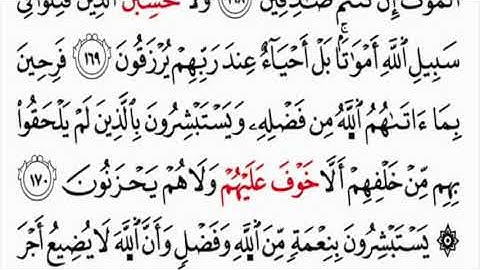 الْمَوْتَ إِن كُنتُمْ صَٰدِقِينَ ١٦٨ وَلَا تَحْسَبَنَّ الَّذِينَ قُتِلُوا۟ فِى
سَبِيلِ اللَّهِ أَمْوَٰتًۢا ۚ بَلْ أَحْيَآءٌ عِندَ رَبِّهِمْ يُرْزَقُونَ ١٦٩ فَرِحِينَ
بِمَآ ءَاتَىٰهُمُ اللَّهُ مِن فَضْلِهِۦ وَيَسْتَبْشِرُونَ بِالَّذِينَ لَمْ يَلْحَقُوا۟
بِهِم مِّنْ خَلْفِهِمْ أَلَّا خَوْفٌ عَلَيْهِمْ وَلَا هُمْ يَحْزَنُونَ ١٧٠
۞ يَسْتَبْشِرُونَ بِنِعْمَةٍ مِّنَ اللَّهِ وَفَضْلٍ وَأَنَّ اللَّهَ لَا يُضِيعُ أَجْرَ